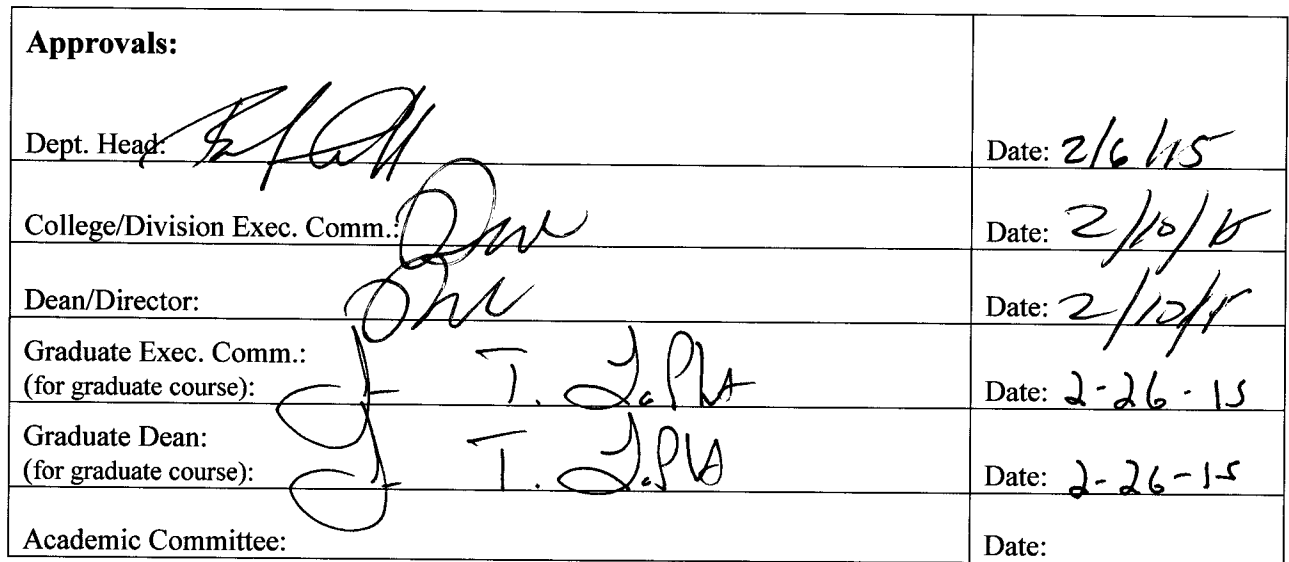 Approvals:
Dept. Head: Date: 2/6/15
College/Division Exec. Comm.: Date: 2/10/15
Dean/Director: Date: 2/10/15
Graduate Exec. Comm.:
(for graduate course): J T. Date: 2-26-15
Graduate Dean:
(for graduate course): J T. Date: 2-26-15
Academic Committee: Date: